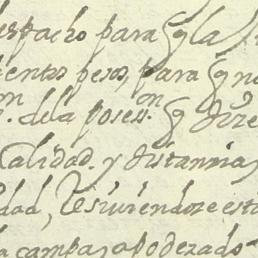 despacho para q̃ la
ientos pesos, para q̃ no
n. de la posess.on q̃ dize
Calidad. y distancia
dad, resiviendose est
la campa, apoderado